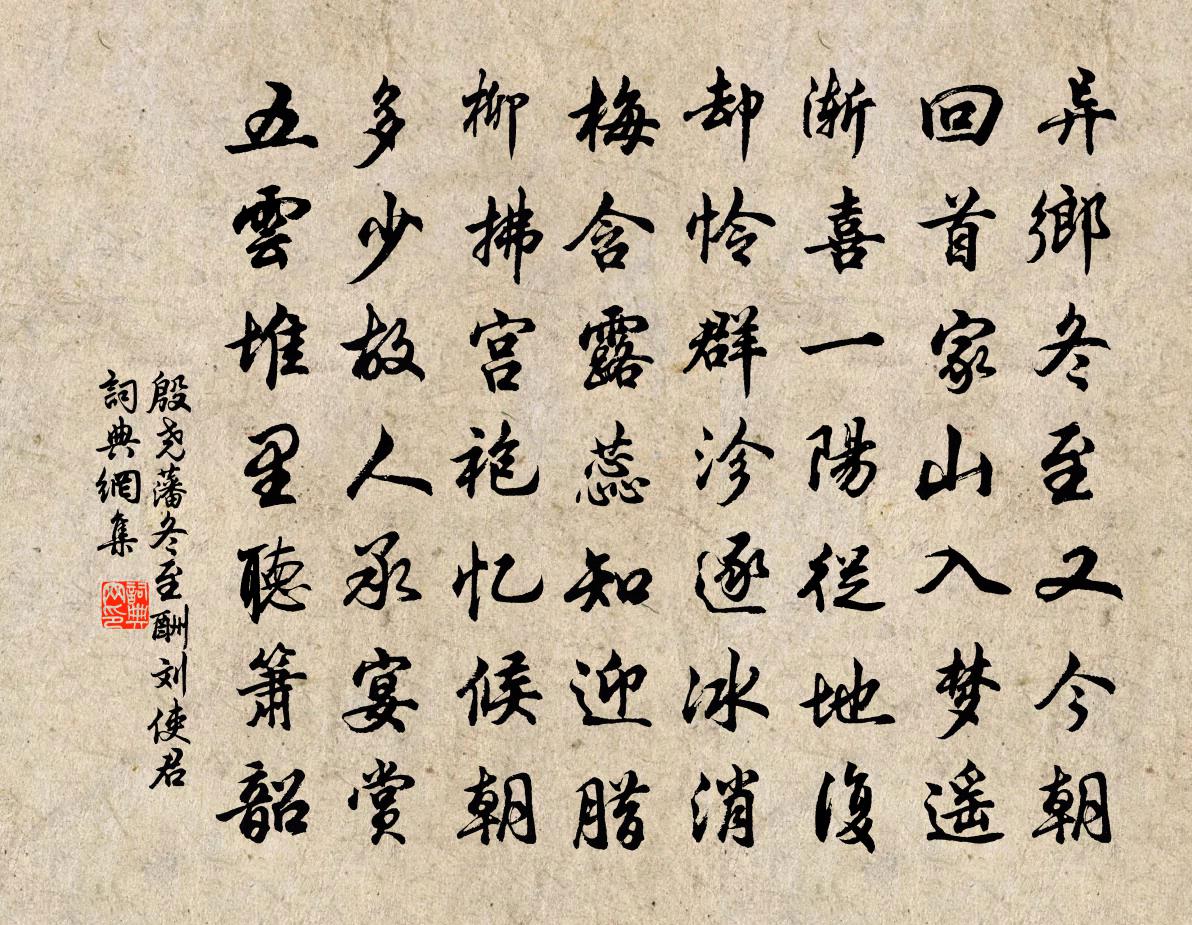 异鄉冬至又今朝
回首家山入梦遥
渐喜一陽從地復
却怜群沴逐冰消
梅含露蕊知迎腊
柳拂宫袍忆候朝
多少故人承宴赏
五雲堆里聽箫韶
殷尧藩冬至酬刘使君
詞典網集
詞典網印